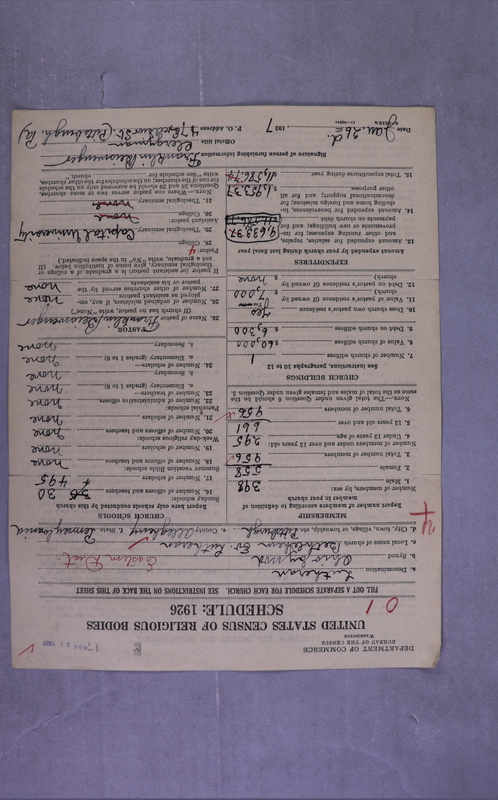 DEPARTMENT OF COMMERCE
BUREAU OF THE CENSUS
WASHINGTON
UNITED STATES CENSUS OF RELIGIOUS BODIES
SCHEDULE: 1926
FILL OUT A SEPARATE SCHEDULE FOR EACH CHURCH. SEE INSTRUCTIONS ON THE BACK OF THIS SHEET
a. Denomination Lutheran
b. Synod Ohio Synod Eastern Dist
c. Local name of church Bethlehem Ev. Lutheran
d. City, town, village, or township, etc. Pittsburgh e. County Allegheny f. State Pennsylvania
MEMBERSHIP
Report number of members according to definition of member in your church
Number of members, by sex:
1. Male 398
2. Female 558
3. Total number of members 956
Number of members under and over 13 years old:
4. Under 13 years of age 295
5. 13 years old and over 661
6. Total number of members 956
NOTE.—The total given under Question 6 should be the same as the total of males and females given under Question 3.
CHURCH BUILDINGS
See instructions, paragraphs 10 to 12
7. Number of church edifices 1
8. Value of church edifices $60,000
9. Debt on church edifices $6,300
10. Does church own pastor's residence yes
11. Value of pastor's residence (if owned by church) $7,000
12. Debt on pastor's residence (if owned by church) $ none
EXPENDITURES
Amount expended by your church during last fiscal year
13. Amount expended for salaries, repairs, and other running expenses; for improvements or new buildings; and for payments on church debt $9,639.37
14. Amount expended for benevolences, including home and foreign missions; for denominational support; and for all other purposes $1,953.37
15. Total expenditures during year
CHURCH SCHOOLS
Report here only schools conducted by this church
Sunday schools:
16. Number of officers and teachers 30
17. Number of scholars 495
Summer vacation Bible schools:
18. Number of officers and teachers none
19. Number of scholars none
Week-day religious schools:
20. Number of officers and teachers none
21. Number of scholars none
Parochial schools:
22. Number of administrative officers none
23. Number of teachers—
a. Elementary (grades 1 to 8) none
b. Secondary none
24. Number of scholars—
a. Elementary (grades 1 to 8) none
b. Secondary none
PASTOR
25. Name of pastor Franklin
(If church has no pastor, write "None")
26. Number of ordained ministers, if any, employed as assistant pastors none
27. Number of other churches served by the pastor or his assistants none
If pastor (or assistant pastor) is a graduate of a college or theological seminary, give name of institution below. (If not a graduate, write "No" in the space indicated.)
Pastor:
28. College
29. Theological seminary Capital University
Assistant pastor:
30. College none
31. Theological seminary none
Signature of person furnishing information Franklin
Official title Clergyman
Date Jan. 26, 1927 P. O. Address